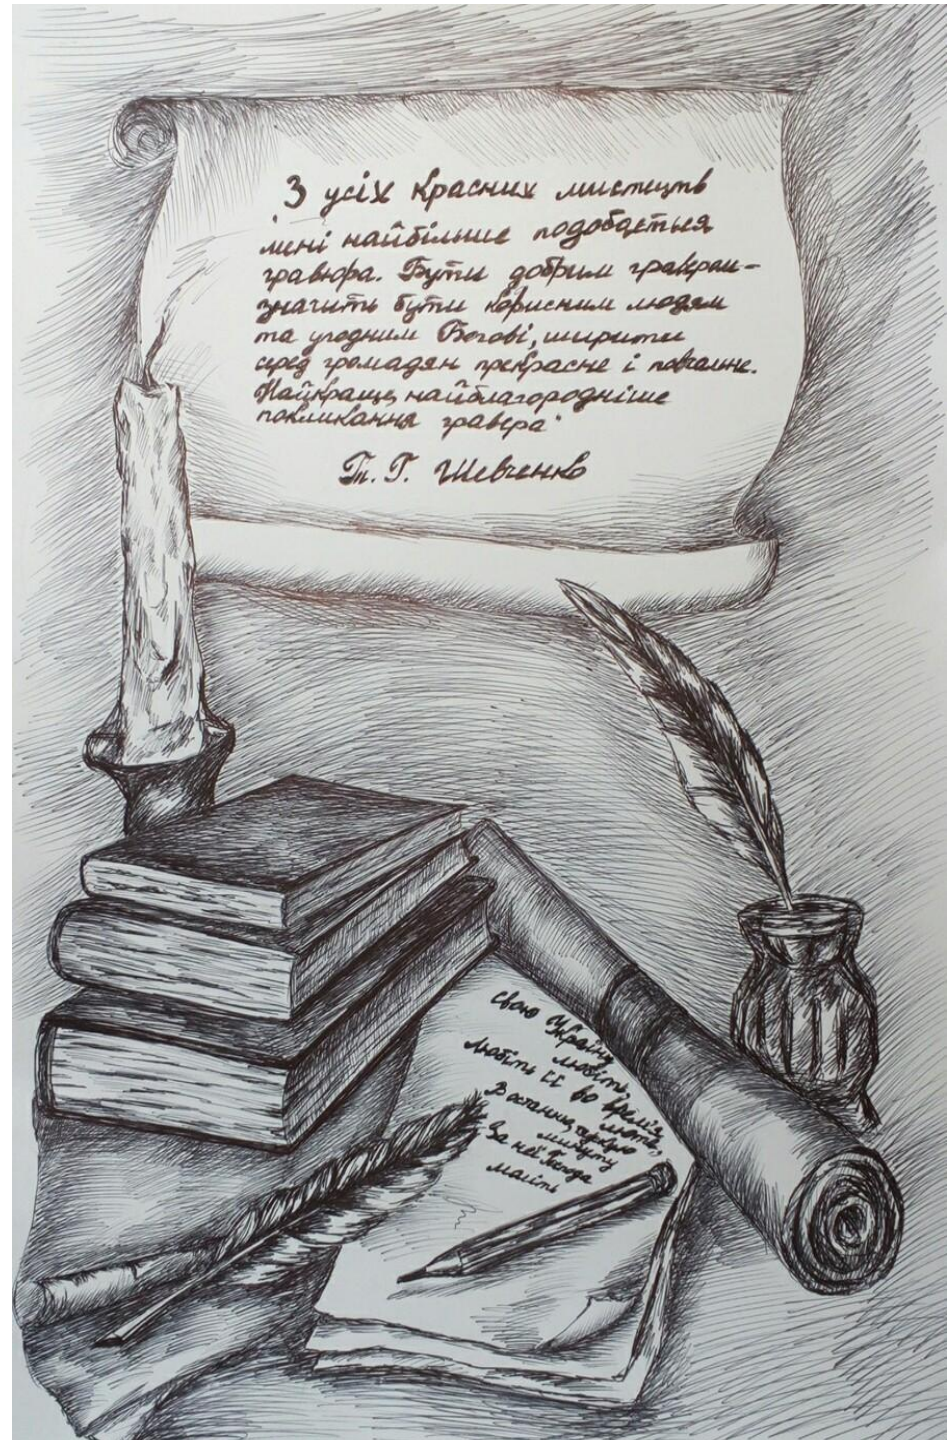 „З усіх красних мистецтв
мені найбільше подобається
гравюра. Бути добрим гравером -
значить бути корисним людям
та угодним Богові, ширити
серед громадян прекрасне і повчальне.
Найкраще, найблагородніше
покликання гравера"
Т. Г. Шевченко
свою Україну
любіть,
Любіть її во время
люте,
В останню, тяжкую
минуту
За неї Господа
моліть